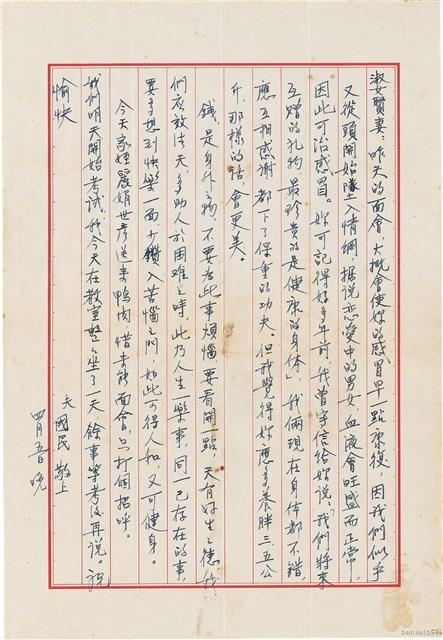 淑賢妻：昨天的面會，大概會使妳的感冒早一點康復，因我們似乎
又從頭開始墜入情網，據說戀愛中的男女，血液會旺盛而正常，
因此可治感冒。妳可記得好多年前，我曾寫信給妳說：「我們將來
互贈的禮物，最珍貴的是健康的身體」，我倆現在身體都不錯，
應互相感謝，都下了保重的功夫。但我覺得妳應多養胖三、五公
斤，那樣的話，會更美。
錢，是身外之物，不要為此事煩惱，要看開一點，天有好生之德，我
們應效法天，多助人於困難之時，此乃人生一樂事，同一已存在的事，
要多想到快樂一面，少鑽入苦惱之門，如此可得人和，又可健身。
今天家姪麗娟世彥送來鴨肉，惜未能面會，只打個招呼。
我們明天開始考試，我今天在教室整整坐了一天，餘事等考後再說。祝
愉快
夫國民敬上
四月五日晚